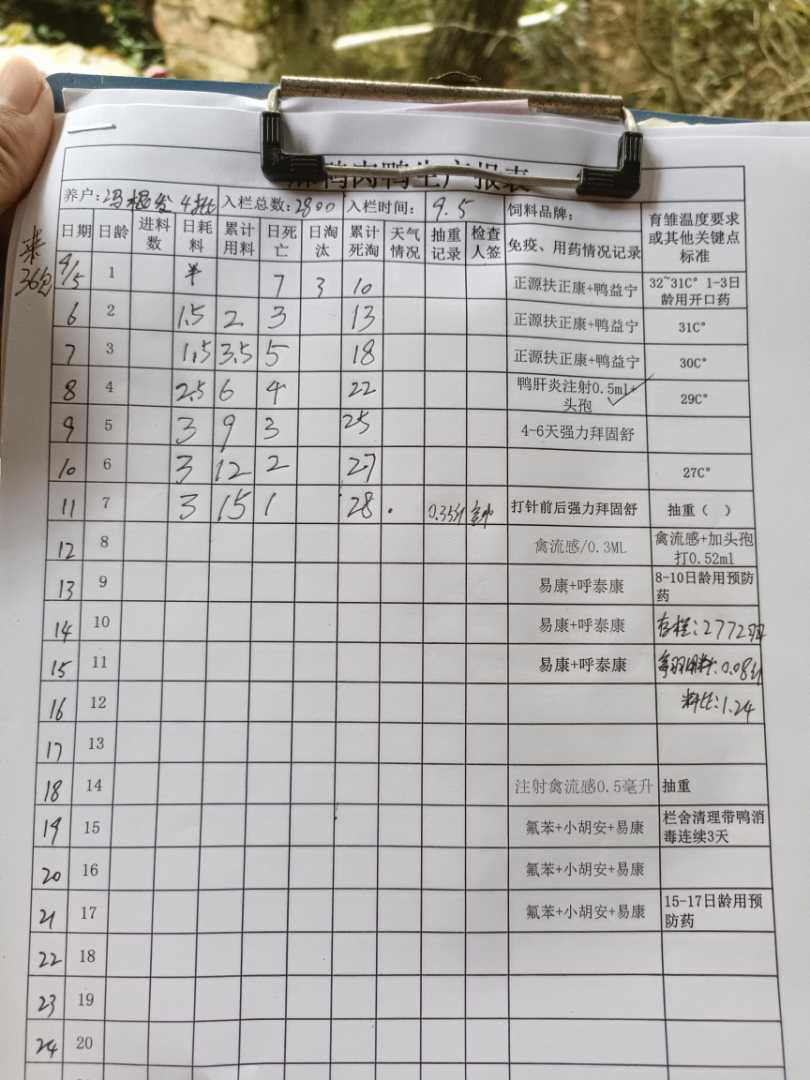 麻鸭肉鸭生产报表
养户: 冯 发 4批 入栏总数: 2800 入栏时间: 9.5 饲料品牌:
日期 日龄 进料数 日耗料 累计用料 日死亡 日淘汰 累计死淘 天气情况 抽重记录 检查人签 免疫、用药情况记录 育雏温度要求或其他关键点标准
来36包
9/5 1 半 7 3 10 正源扶正康+鸭益宁 32~31C° 1-3日龄用开口药
6 2 1.5 2 3 13 正源扶正康+鸭益宁 31C°
7 3 1.5 3.5 5 18 正源扶正康+鸭益宁 30C°
8 4 2.5 6 4 22 鸭肝炎注射0.5ml+头孢 ✓ 29C°
9 5 3 9 3 25 4-6天强力拜固舒
10 6 3 12 2 27 27C°
11 7 3 15 1 28 . 0.33斤 打针前后强力拜固舒 抽重( )
12 8 禽流感/0.3ML 禽流感+加头孢打0.52ml
13 9 易康+呼泰康 8-10日龄用预防药
14 10 易康+呼泰康 存栏:2772羽
15 11 易康+呼泰康 每羽用料:0.08包
16 12 料比:1.24
17 13
18 14 注射禽流感0.5毫升 抽重
19 15 氟苯+小胡安+易康 栏舍清理带鸭消毒连续3天
20 16 氟苯+小胡安+易康
21 17 氟苯+小胡安+易康 15-17日龄用预防药
22 18
23 19
24 20